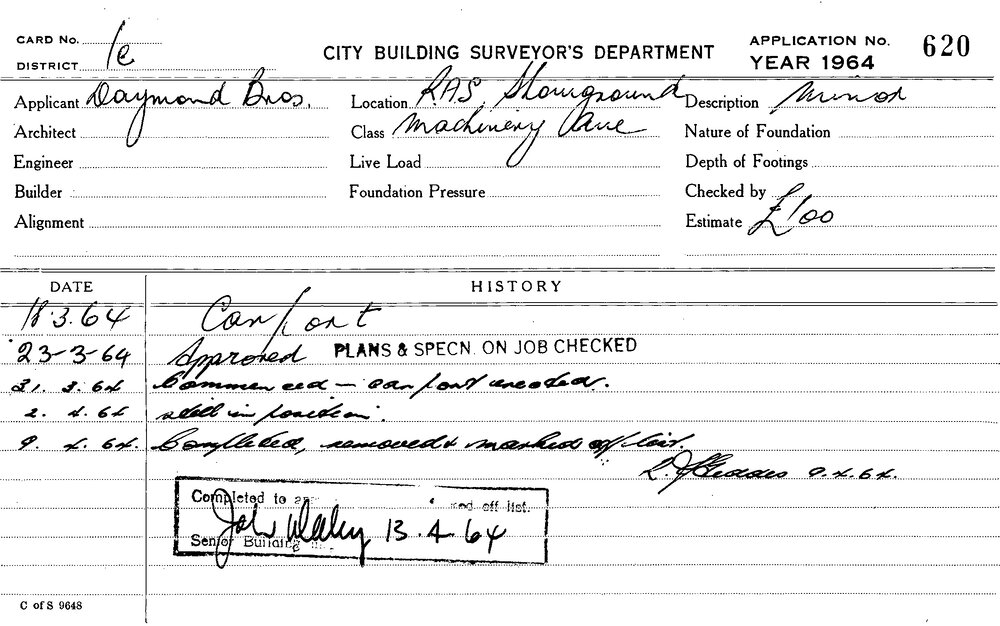 CARD No.
DISTRICT 1c
CITY BUILDING SURVEYOR'S DEPARTMENT
APPLICATION No. 620
YEAR 1964
Applicant Daymond Bros. Location RAS, Showground Description Minor
Architect Class Machinery Pave Nature of Foundation
Engineer Live Load Depth of Footings
Builder Foundation Pressure Checked by
Alignment Estimate £100
DATE HISTORY
18.3.64 Car port
23-3-64 Approved PLANS & SPECN. ON JOB CHECKED
31. 3. 64 Commenced – car port erected.
2. 4. 64 still in position.
9. 4. 64. Completed, removed & marked off list.
Geddes 9.4.64.
Completed to off list.
John 13.4.64
Senior Building
C of S 9648